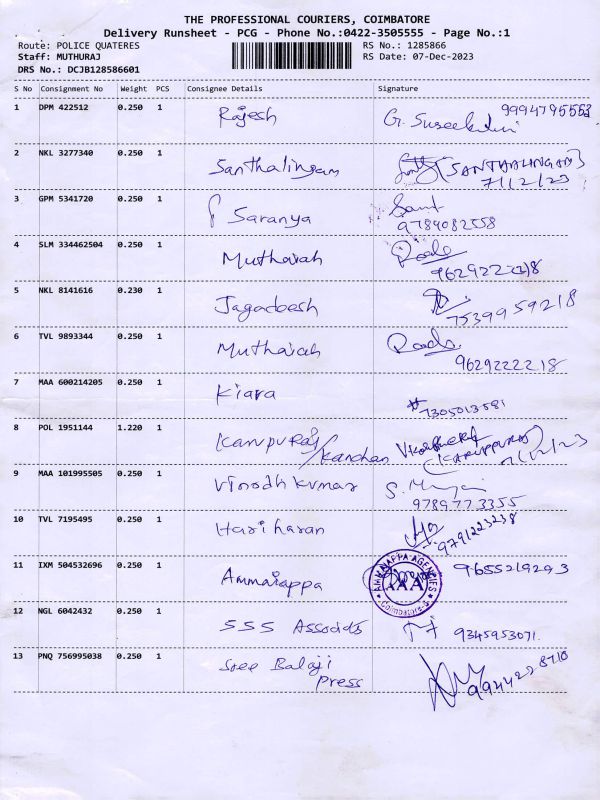 THE PROFESSIONAL COURIERS, COIMBATORE
Delivery Runsheet - PCG - Phone No.:0422-3505555 - Page No.:1
Route: POLICE QUATERES RS No.: 1285866
Staff: MUTHURAJ RS Date: 07-Dec-2023
DRS No.: DCJB128586601
S No Consignment No Weight PCS Consignee Details Signature
1 DPM 422512 0.250 1 Rajesh 9994795553
2 NKL 3277340 0.250 1 Santhalingam (SANTHALINGAM)
7/12/23
3 GPM 5341720 0.250 1 Saranya
9789082558
4 SLM 334462504 0.250 1 Muthaiah
5 NKL 8141616 0.230 1 Jagadeesh
7539959218
6 TVL 9893344 0.250 1 Muthaiah
9629222218
7 MAA 600214205 0.250 1 Kiara
7305013581
8 POL 1951144 1.220 1 Karupuraj
/Kanchan (KARUPPURAJ)
9 MAA 101995505 0.250 1 Vinodh kumar
9789773355
10 TVL 7195495 0.250 1 Hari haran
9791223238
11 IXM 504532696 0.250 1 Ammaiappa AMMAIAPPA AGENCIES AAA Coimbatore 9655219293
12 NGL 6042432 0.250 1 SSS 9345953071.
13 PNQ 756995038 0.250 1 Sree Balaji
Press